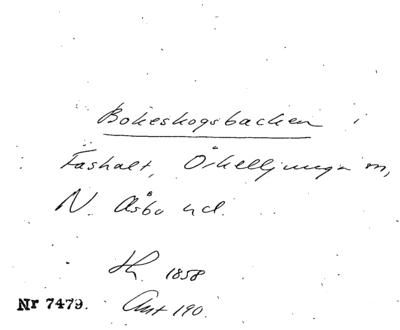 Bokeskogsbacken i
Fashalt, Örkelljunga sn,
N. Åsbo hd.
Sk. 1858
Nr 7479. Ant 190.